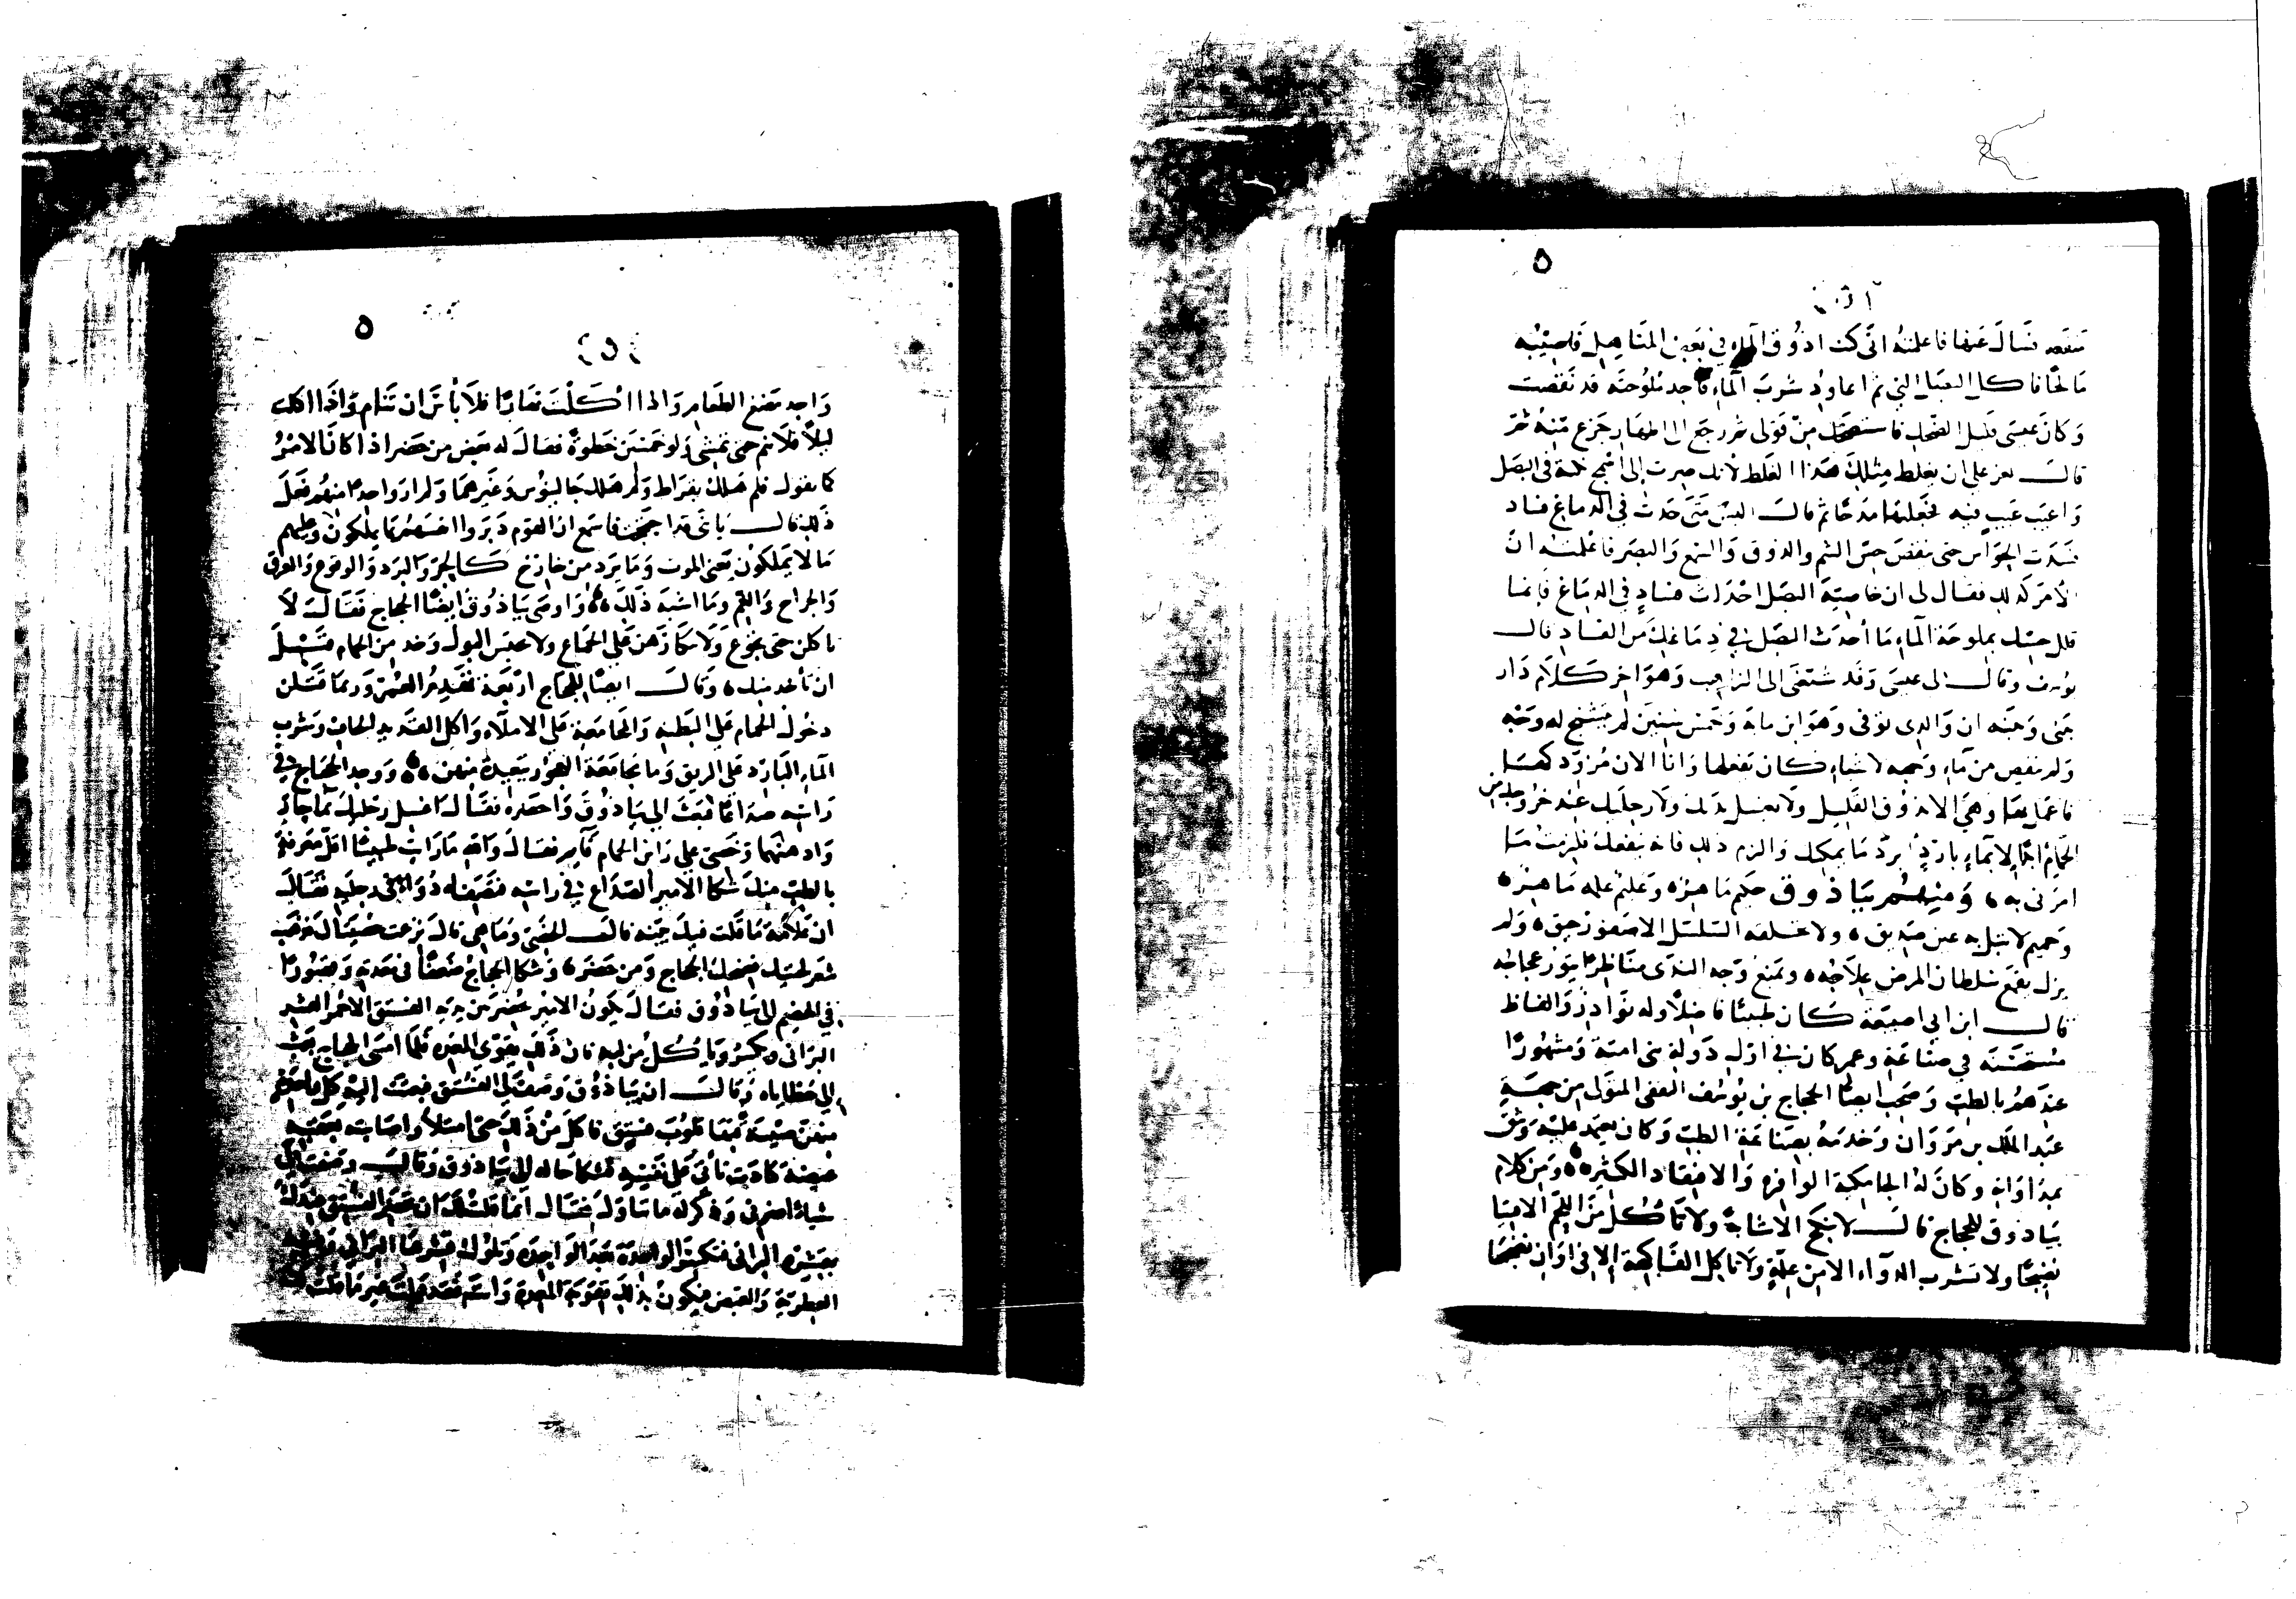 ٥
تنقصه فسال عنها فاعلمته انى كنت اذوق الماء في بعض المناهل فاصيبه
مالحا فاكل البصل الني ثم اعاود شرب الماء فاجد ملوحته قد نقصت
وكان عيسى قليل الضحك فاستضحك من قولى ثم رجع الى اظهار جزع منه ثم
قال يعز على ان يغلط مثلك هذا الغلط لانك صرت الى اسمج خلة فى البصل
واعيب عيب فيه فجعلتها مدحا ثم قال اليس متى حدث في الدماغ فساد
فسدت الحواس حتى ينقص حس الشم والذوق والسمع والبصر فاعلمته ان
الامر كذلك فقال لى ان خاصية البصل احداث فساد في الدماغ فانما
قلل حسك بملوحة الماء ما احدث البصل في دماغك من الفساد قال
يوسف وقال لى عيسى وقد شيعنى الى الراهب وهو اخر كلام دار
بينى وبينه ان والدى توفى وهو ابن مائة وخمس سنين لم يتشنج له وجه
ولم ينقص من ماء وجهه لاشياء كان يفعلها وانا الان مزودكها
فاعمل بها وهي الا تذوق القليل ولا تغسل يديك ولا رجليك عند خروجك من
الحمام ابدا الا بماء بارد ابرد ما يمكنك والزم ذلك فانه ينفعك فلزمت ما
امرنى به ومنهم تياذوق حكيم ماهر وعليم
وحميم ولا
يزل يقمع سلطان المرض علاجه ويمنع وجه الندى
قال ابن ابي اصيبعة كان طبيبا فاضلا وله نوادر والفاظ
مستحسنه في صناعة وعمر كان في اول دولة بنى امية ومشهورا
عندهم بالطب وصحب ايضا الحجاج بن يوسف الثقفى المتولى من جهة
عبد الملك بن مروان وخدمه بصناعة الطب وكان يعتمد عليه ويثق
بمداواته وكان له الجامكية الوافره والافتقاد الكثير ومن كلام
تياذوق للحجاج قال لا تنكح الا شابة ولا تاكل من اللحم الا فتيا
نضيجا ولا تشرب الدواء الا من علة ولا تاكل الفاكهة الا فى اوان نضجها
٥
واجد مضغ الطعام واذا اكلت نهارا فلا باس ان تنام واذا اكلت
ليلا فلا تنم حتى تمشى ولو خمسين خطوة فقال له بعض من حضر اذا كان الامر
كما تقول فلم هلك بقراط ولم هلك جالينوس وغيرهما ولم ار واحدا منهم فعل
ذلك قال يا بنى قد احتججت فاسمع ان القوم دبروا انفسهم بما يملكون وغلبهم
ما لا يملكون يعنى الموت وما يرد من خارج كالحر والبرد والوقوع والغرق
والجراح والغم وما اشبه ذلك واوصى تياذوق ايضا الحجاج فقال لا
تاكلن حتى تجوع ولا تتكارهن على الجماع ولا تحبس البول وخذ من الحمام قبل
ان ياخذ منك وقال ايضا للحجاج اربعة تهدم العمر وربما قتلن
دخول الحمام على البطنة والمجامعة على الامتلاء واكل القديد الجاف وشرب
الماء البارد على الريق وما مجامعة العجوز ببعيدة منهن ووجد الحجاج في
راسه صداعا فبعث الى تياذوق واحضره فقال اغسل رجليك بماء حار
وادهنهما وخصى على راس الحجاج قايم فقال والله ما رايت طبيبا اقل معرفة
بالطب منك شكا الامير الصداع في راسه فتصف له دواء في رجليه فقال
ان علامة ما قلت فيك بينه قال الخصى وما هى قال نزعت خصيتاك فذهب
شعر لحيتك فضحك الحجاج ومن حضر وشكا الحجاج ضعفا في معدته وقصورا
في الهضم الى تياذوق فقال يكون الامير يحضر بين يديه الفستق الاحمر القشر
البرانى ويكسر وياكل من لبه فان ذلك يقوى المعده فلما امسى الحجاج بعث
الى حظاياه وقال ان تياذوق وصف لى الفستق فبعثت اليه كل واحدة
منهن صينية فيها قلوب فستق فاكل من ذلك حتى امتلأ واصابته بعقبه
هيضة كادت تاتى على نفسه فشكا حاله الى تياذوق وقال وصفت لى
شيئا اضر بى وذكر له ما تناول فقال انما قلت لك ان تحضر الفستق عندك
بقشره البرانى فتكسر الواحدة بعد الواحدة وتلوك قشرها البرانى وفيه
العطرية والقبض فيكون بذلك تقوية المعدة وانت فقد عملت غير ما قلت لك